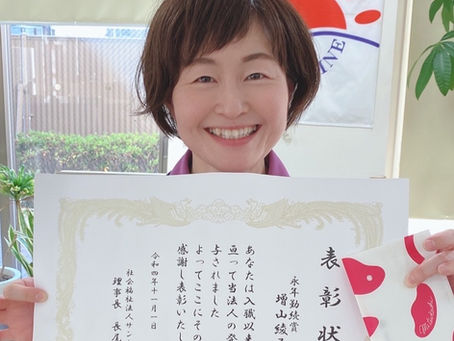 表彰状
永年勤続賞
増山綾
あなたは入職以来
亘って当法人の発
与されました
よってここにその
感謝し表彰いたし
令和四年十一月一日
社会福祉法人サン
理事長 長尾
INE